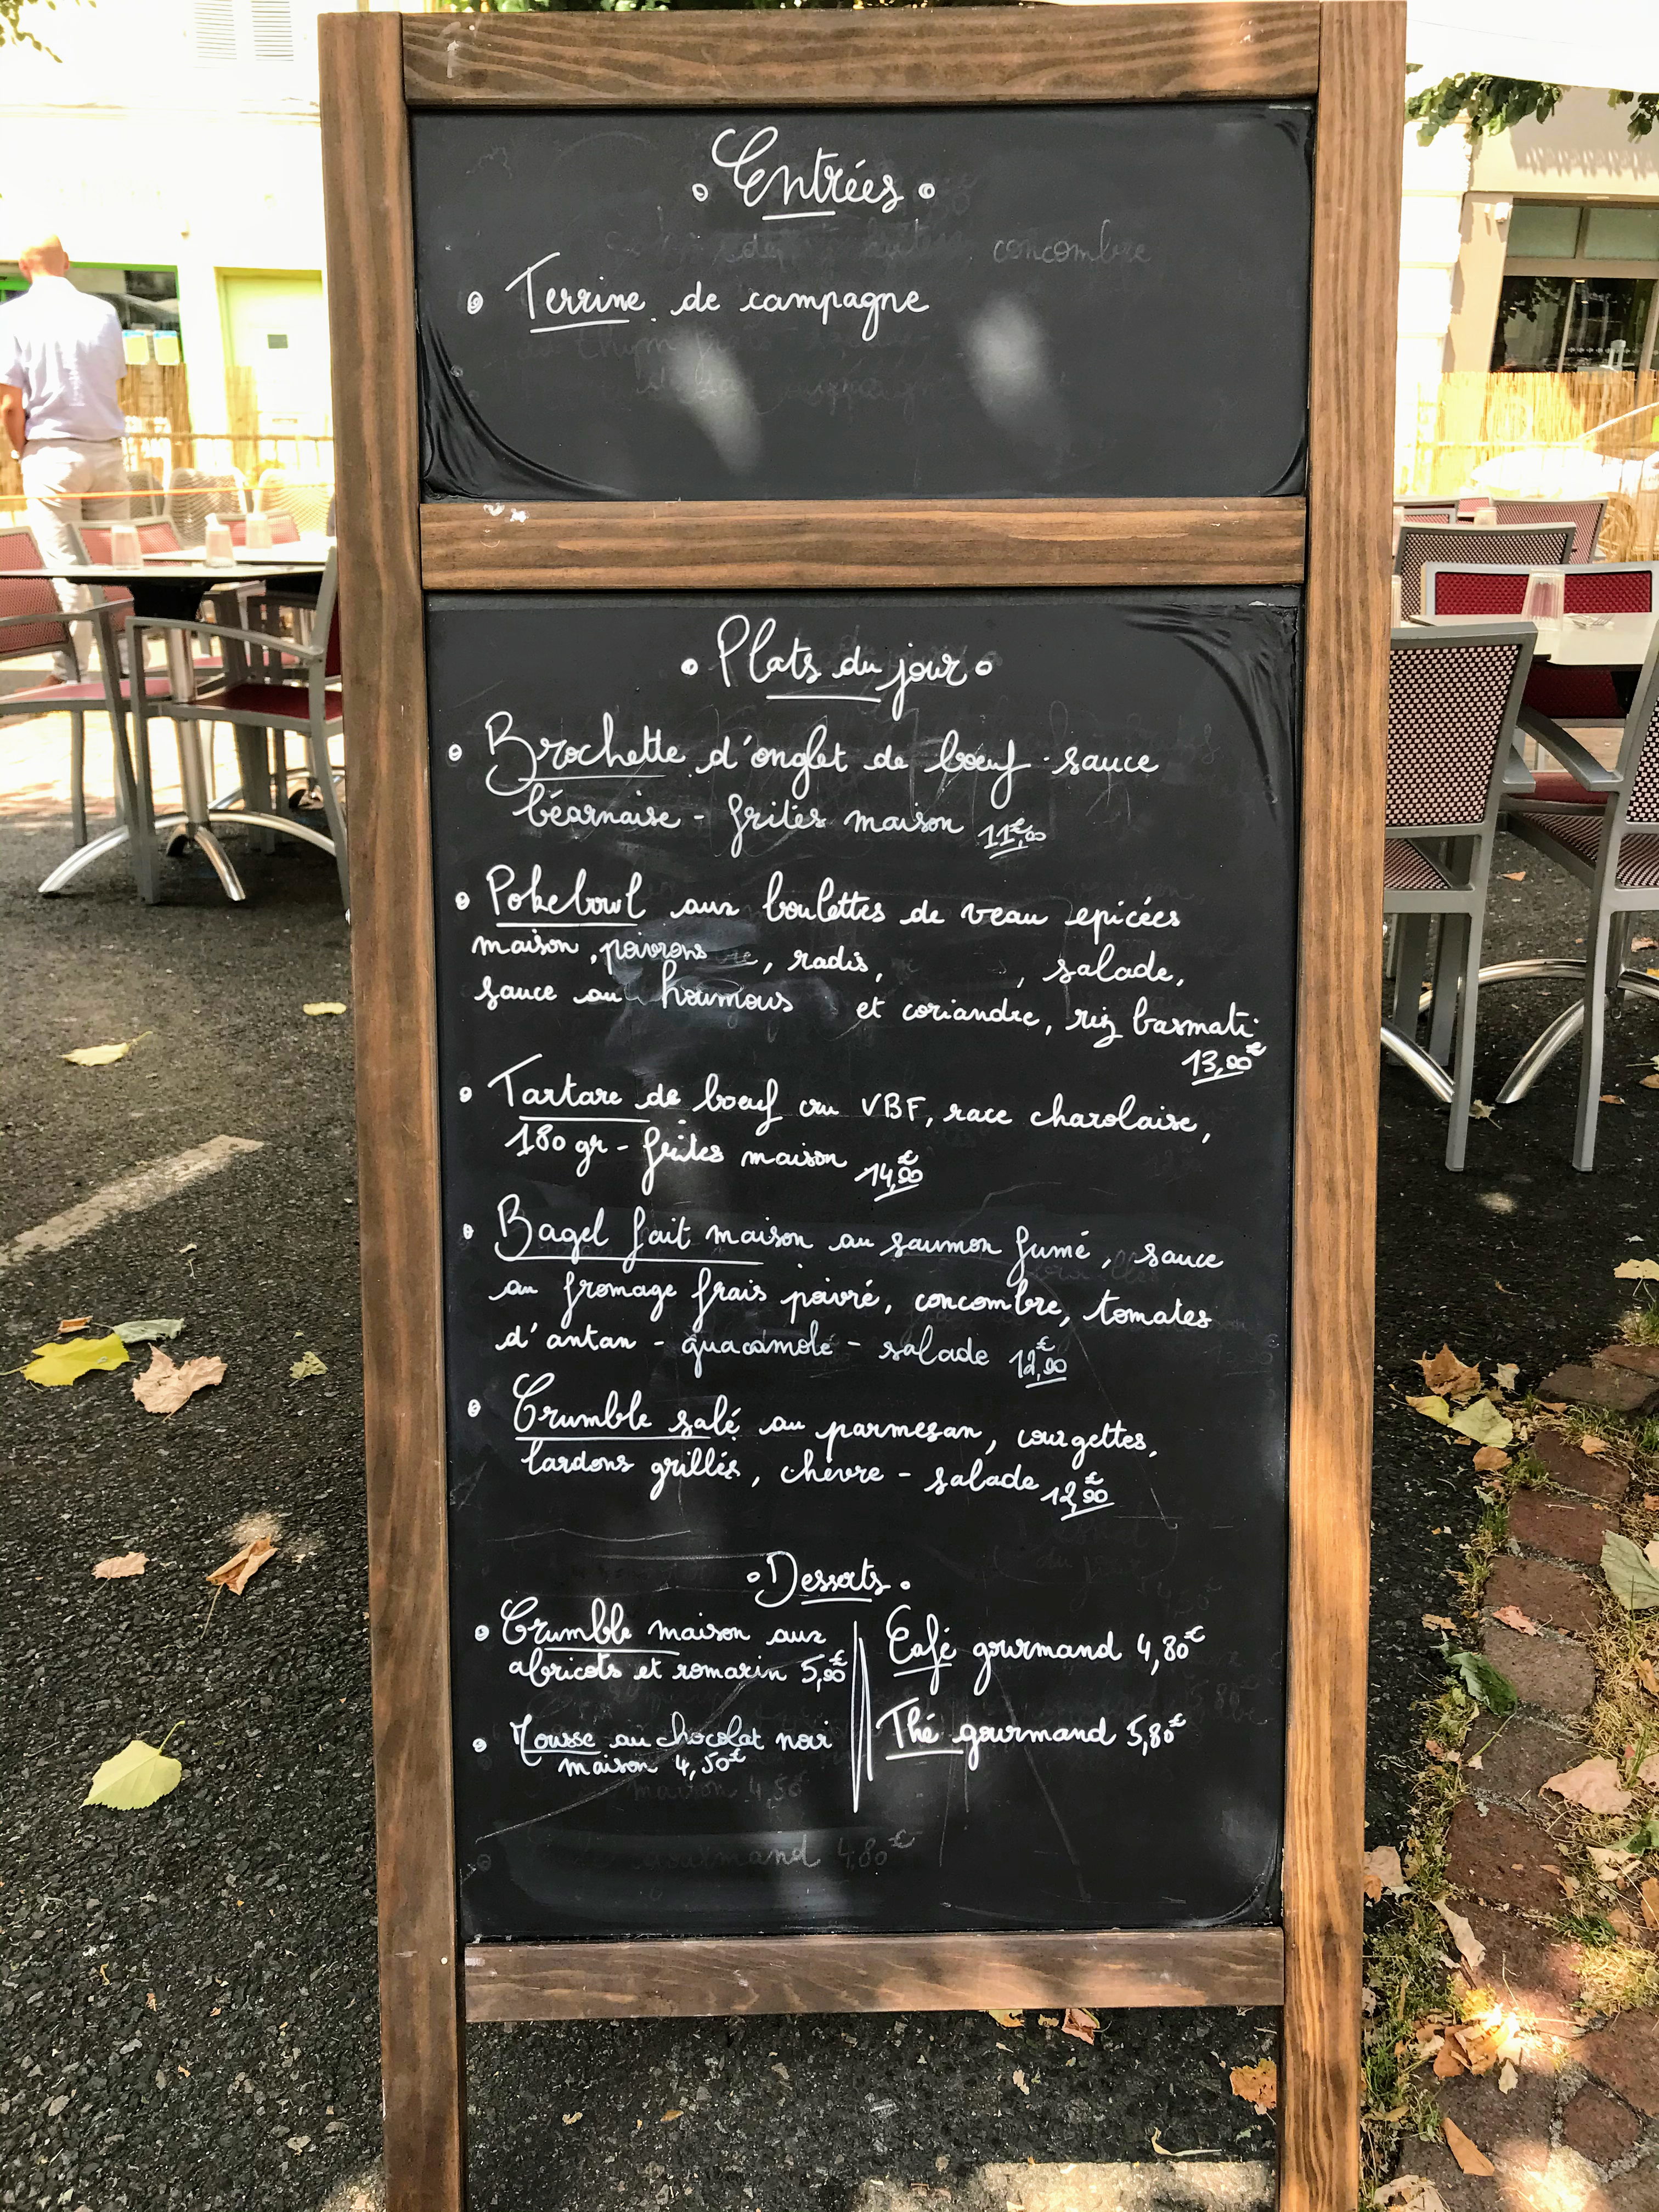 Entrées
concombre
Terrine de campagne
Plats du jour
Brochette d'onglet de bœuf sauce
béarnaise - frites maison 11€,00
Pokebowl aux boulettes de veau epicées
maison, poivrons, radis, , salade,
sauce au houmous et coriandre, riz basmati
13,90€
Tartare de bœuf cru VBF, race charolaise,
180 gr - frites maison 14,90€
Bagel fait maison au saumon fumé, sauce
au fromage frais poivré, concombre, tomates
d'antan - guacamolé - salade 12,90€
Crumble salé au parmesan, courgettes,
lardons grillés, chèvre - salade 12,90€
Desserts
Crumble maison aux
abricots et romarin 5,90€
Mousse au chocolat noir
maison 4,50€
Café gourmand 4,80€
Thé gourmand 5,80€
maison 4,50€
gourmand 4,80€